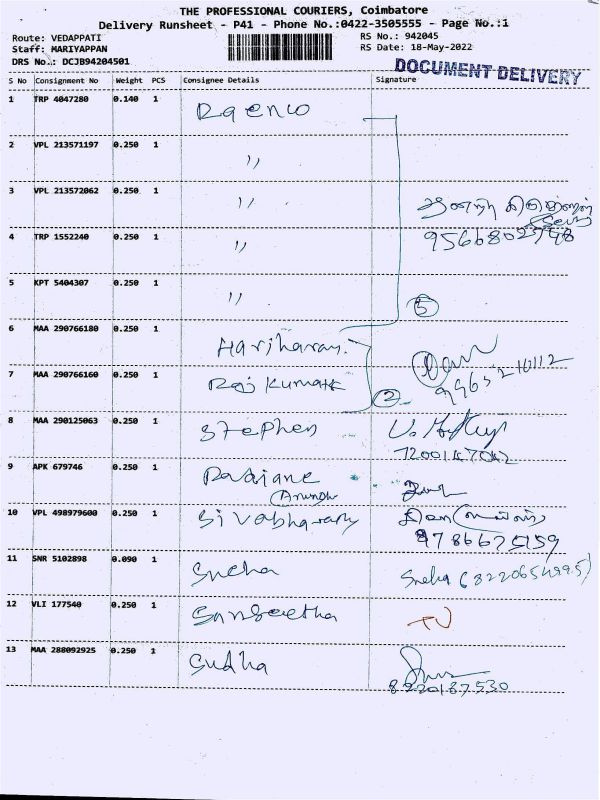 THE PROFESSIONAL COURIERS, Coimbatore
Delivery Runsheet - P41 - Phone No.:0422-3505555 - Page No.:1
Route: VEDAPPATI
RS No.: 942045
Staff: MARIYAPPAN
RS Date: 18-May-2022
DRS No.: DCJB94204501
DOCUMENT DELIVERY
S No Consignment No Weight PCS Consignee Details Signature
1 TRP 4047280 0.140 1
2 VPL 213571197 0.250 1 〃
3 VPL 213572062 0.250 1 〃
4 TRP 1552240 0.250 1 〃
9566802748
5 KPT 5404307 0.250 1 〃
5
6 MAA 290766180 0.250 1 Hariharan.
7 MAA 290766160 0.250 1 Raj Kumar
9965210112
2
8 MAA 290125063 0.250 1 Stephen
9 APK 679746 0.250 1
10 VPL 498979600 0.250 1
11 SNR 5102898 0.090 1 Sneha Sneha
12 VLI 177540 0.250 1 Sangeetha
13 MAA 288092925 0.250 1 Sudha
8220187530